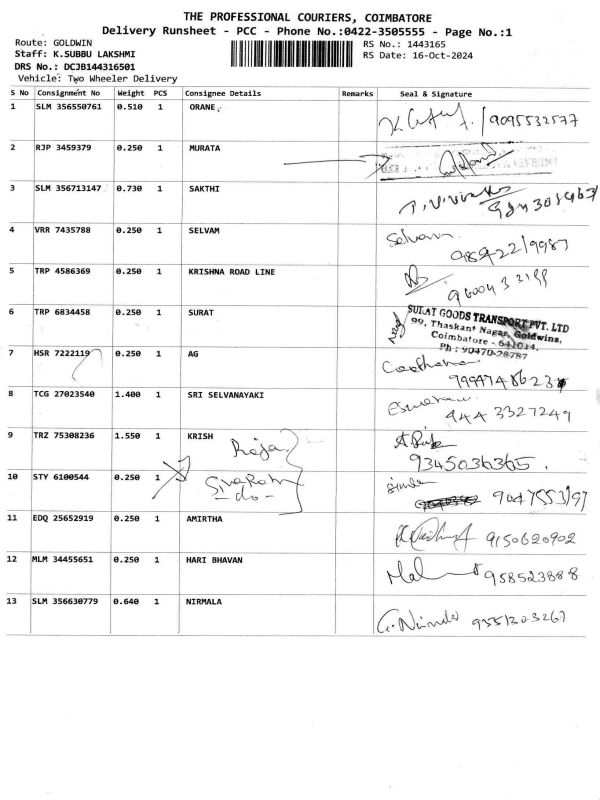 THE PROFESSIONAL COURIERS, COIMBATORE
Delivery Runsheet - PCC - Phone No.:0422-3505555 - Page No.:1
Route: GOLDWIN
Staff: K.SUBBU LAKSHMI
DRS No.: DCJB144316501
Vehicle: Two Wheeler Delivery
RS No.: 1443165
RS Date: 16-Oct-2024
S No Consignment No Weight PCS Consignee Details Remarks Seal & Signature
1 SLM 356550761 0.510 1 ORANE 9095532577
2 RJP 3459379 0.250 1 MURATA
3 SLM 356713147 0.730 1 SAKTHI
4 VRR 7435788 0.250 1 SELVAM Selvam
5 TRP 4586369 0.250 1 KRISHNA ROAD LINE
6 TRP 6834458 0.250 1 SURAT
SURAT GOODS TRANSPORT PVT. LTD
99, Thaskant Nagar, Goldwins,
Coimbatore - 641014.
Ph : 90470-28787
7 HSR 7222119 0.250 1 AG
8 TCG 27023540 1.400 1 SRI SELVANAYAKI 944 3327249
9 TRZ 75308236 1.550 1 KRISH Raja 9345036365.
10 STY 6100544 0.250 1 SivaRam
- do -
11 EDQ 25652919 0.250 1 AMIRTHA 9150620902
12 MLM 34455651 0.250 1 HARI BHAVAN
13 SLM 356630779 0.640 1 NIRMALA G. Nirmala